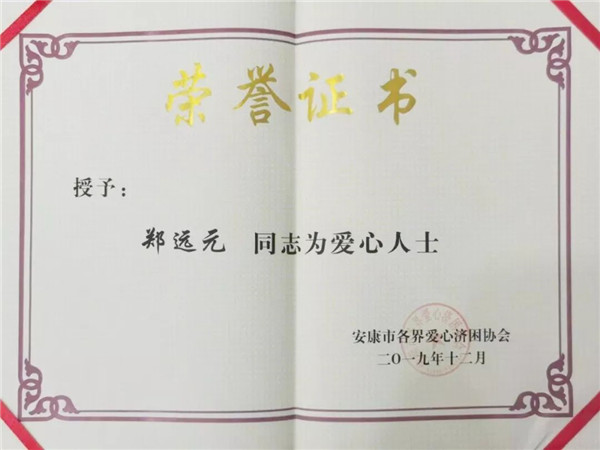 荣誉证书
授予：
郑远元 同志为爱心人士
安康市各界爱心济困协会
二〇一九年十二月